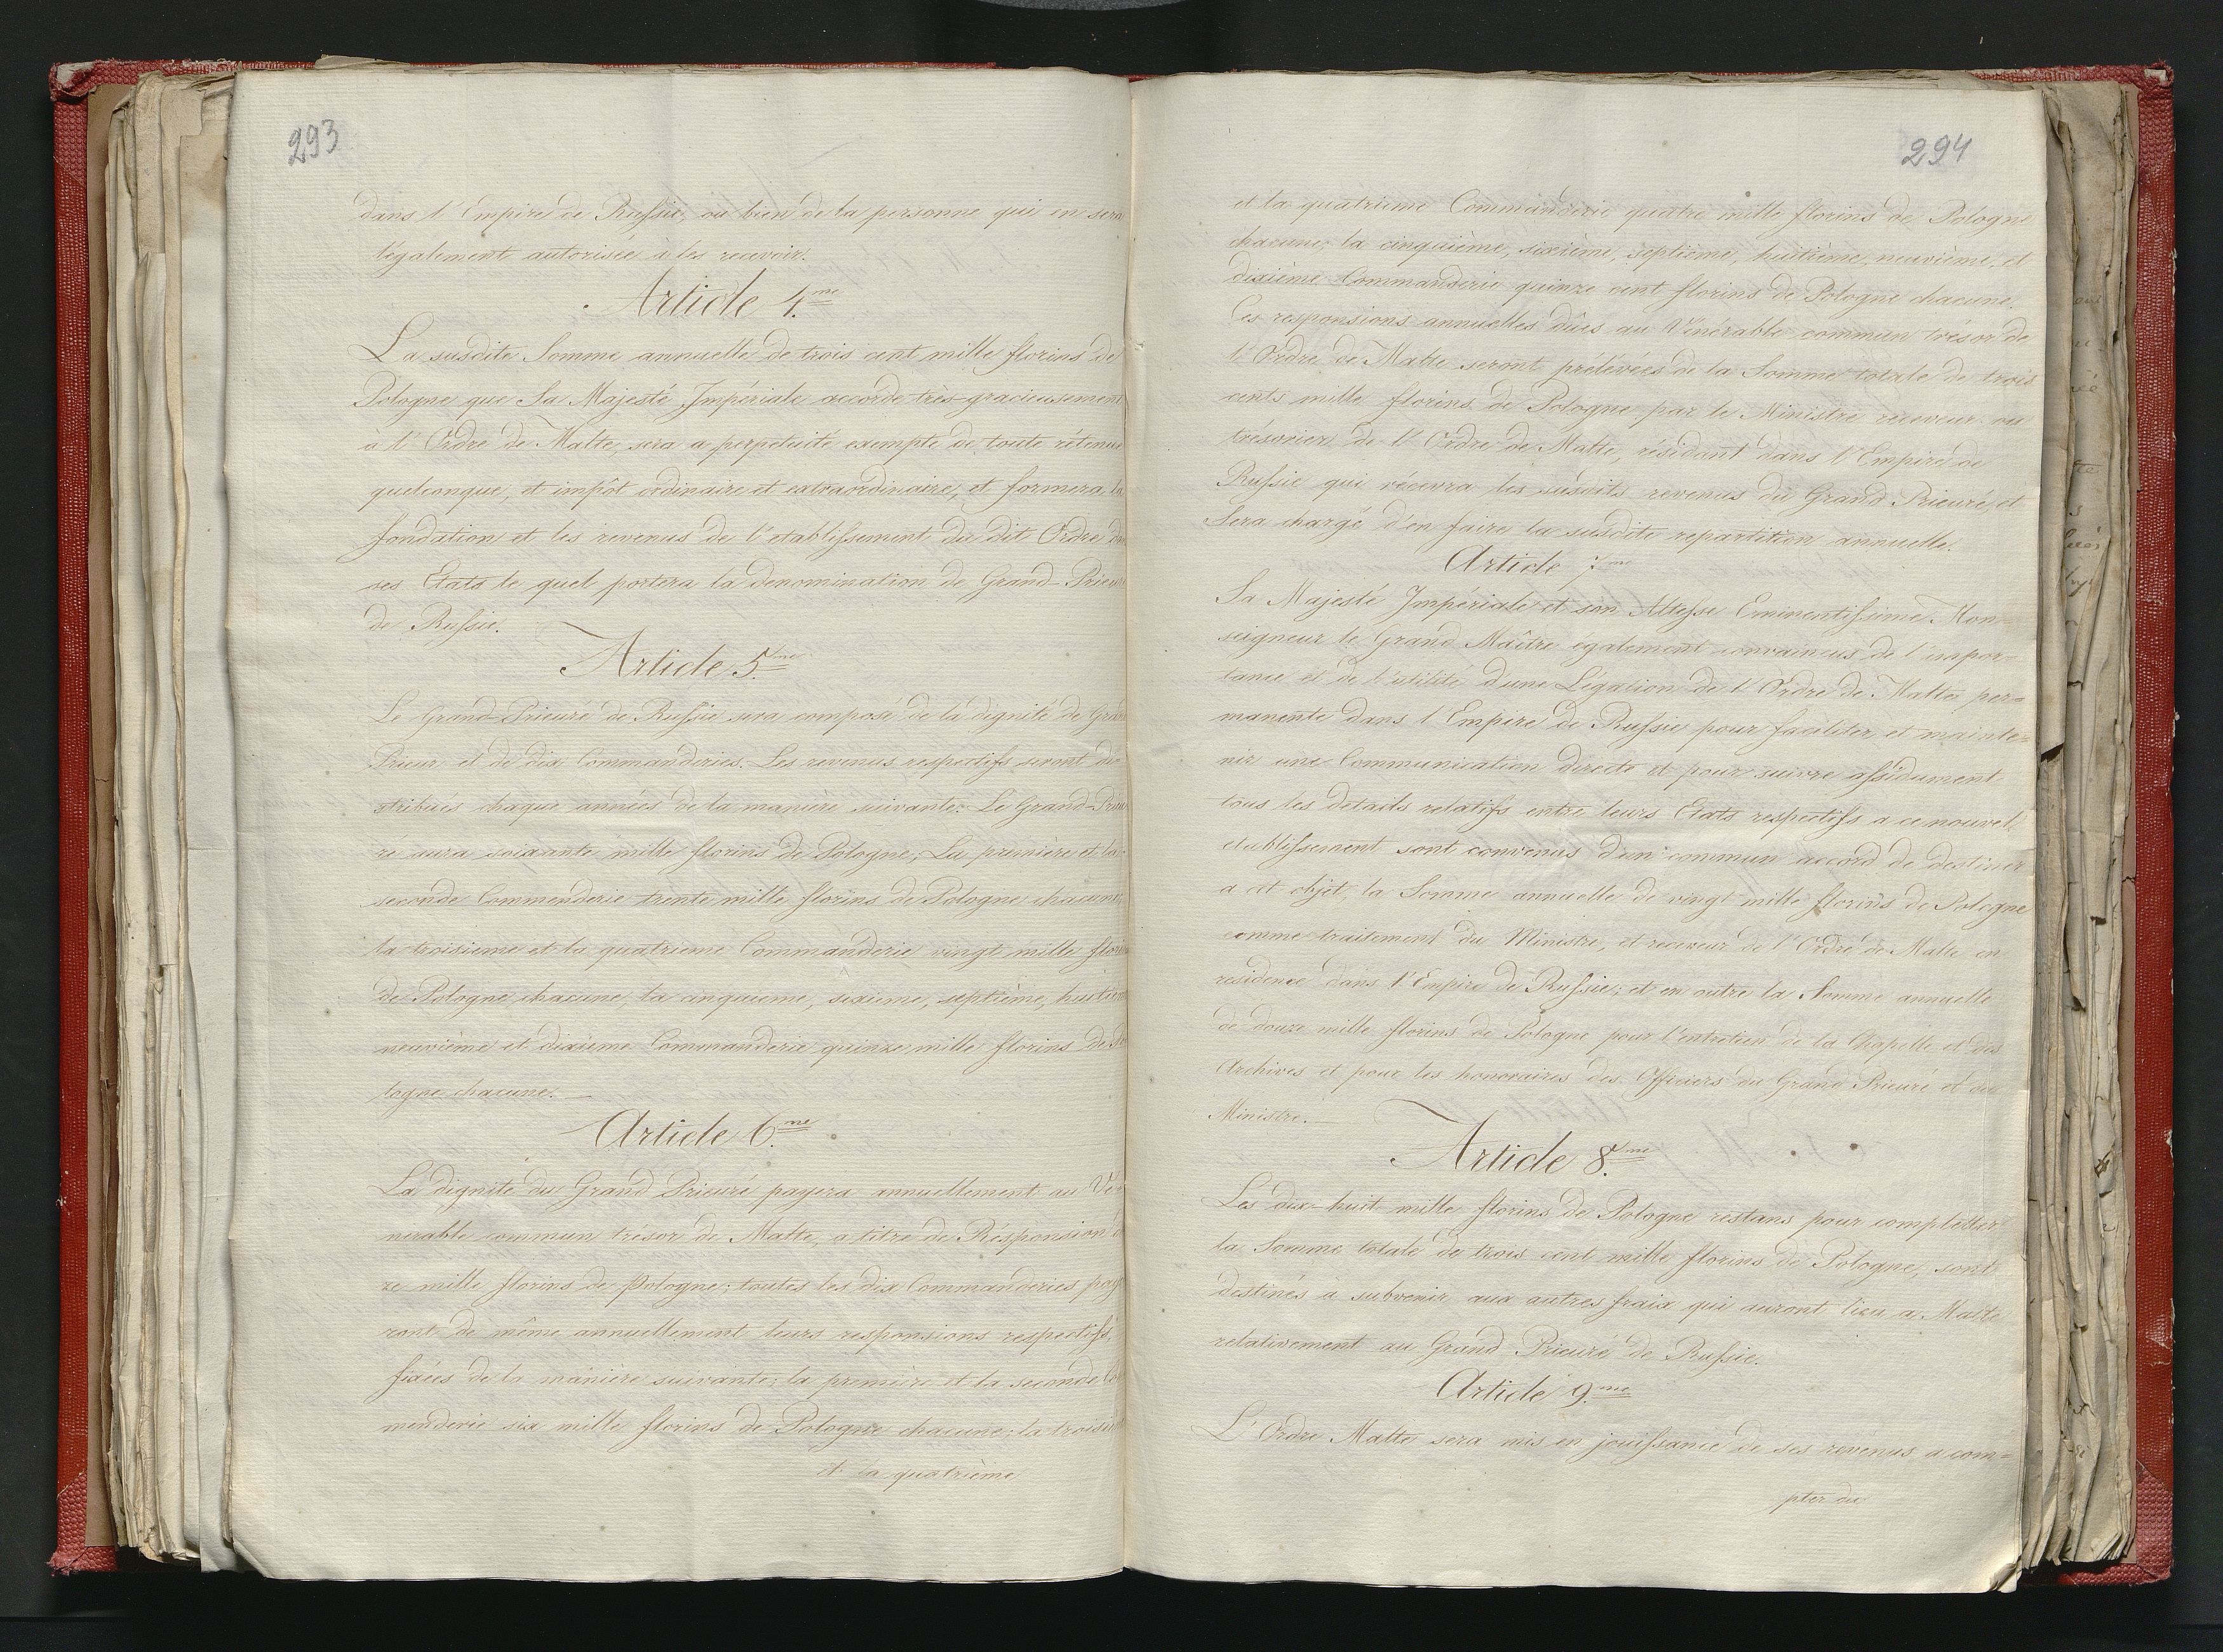 293
dans l'Empire de Russie, ou bien de la personne qui en sera
légalement autorisée à les recevoir.
Article 4.me
La susdite Somme annuelle de trois cent mille florins de
Pologne que Sa Majesté Impériale accorde très-gracieusement
à l'Ordre de Malte, sera a perpetuité exempte de toute rétenue
quelconque, et impôt ordinaire et extraordinaire, et formera la
fondation et les revenus de l'etablissement du dit Ordre
ses Etats le quel portera la denomination de Grand-Prieu
de Russie.
Article 5.me
Le Grand-Prieuré de Russie sera composé de la dignité de Gran
Prieur et de dix Commanderies. Les revenus respectifs seront di
stribués chaque années de la manière suivante: Le Grand-Prieu
ré aura soixante mille florins de Pologne; La première et la
seconde Commenderie trente mille florins de Pologne chacune,
la troisieme et la quatrieme Commanderie vingt mille flori
de Pologne chacune, la cinquieme, sixieme, septième, huitiem
neuvième et dixieme Commanderie quinze mille florins de Po
logne chacune.
Article 6.me
La dignité du Grand Prieuré payera annuellement au Vé-
nérable commun trésor de Malte, a titre de Résponsion d
ze mille florins de Pologne; toutes les dix Commanderies pay
ront de même annuellement leurs responsions respectifs,
fixées de la manière suivante; la première et la seconde Co
menderie six mille florins de Pologne chacune; la troisi
et la quatrième
294
et la quatrieme Commanderie quatre mille florins de Pologne
chacune; la cinquième, sixième, septième, huitième, neuvième, et
dixième Commanderie quinze cent florins de Pologne chacune.
Ces responsions annuelles dûes au Vénérable commun trésor de
l'Ordre de Malte seront prélévées de la Somme totale de trois
cents mille florins de Pologne par le Ministre receveur ou
trésorier de l'Ordre de Malte, résidant dans l'Empire de
Russie qui récevra les susdits revenus du Grand-Prieuré, et
Sera chargé d'en faire la susdite repartition annuelle.
Article 7.me
Sa Majesté Imperiale et son Altesse Eminentissime Mon-
seigneur le Grand Maître également convaincus de l'impor-
tance et de l'utilité d'une Légation de l'Ordre de Malte per=
manente dans l'Empire de Russie pour faciliter et mainte=
nir une Communication directe et pour suivre assidument
tous les details relatifs entre leurs Etats respectifs a ce nouvel
etablissement sont convenus d'un commun accord de destiner
a cet objet, la Somme annuelle de vingt mille florins de Pologne
comme traitement du Ministre, et receveur de l'Ordre de Malte en
residence dans l'Empire de Russie; et en outre la Somme annuelle
de douze mille florins de Pologne pour l'entretien de la Chapelle et des
Archives et pour les honoraires des Officiers du Grand Prieuré et du
Ministre.
Article 8.me
Les dix-huit mille florins de Pologne restans pour completter
la Somme totale de trois cent mille florins de Pologne, sont
destinés a subvenir aux autres fraix qui auront lieu a Malte
relativement au Grand Prieuré de Russie.
Article 9.me
L'Ordre Malte sera mis en jouissance de ses révenus a com=
pter du